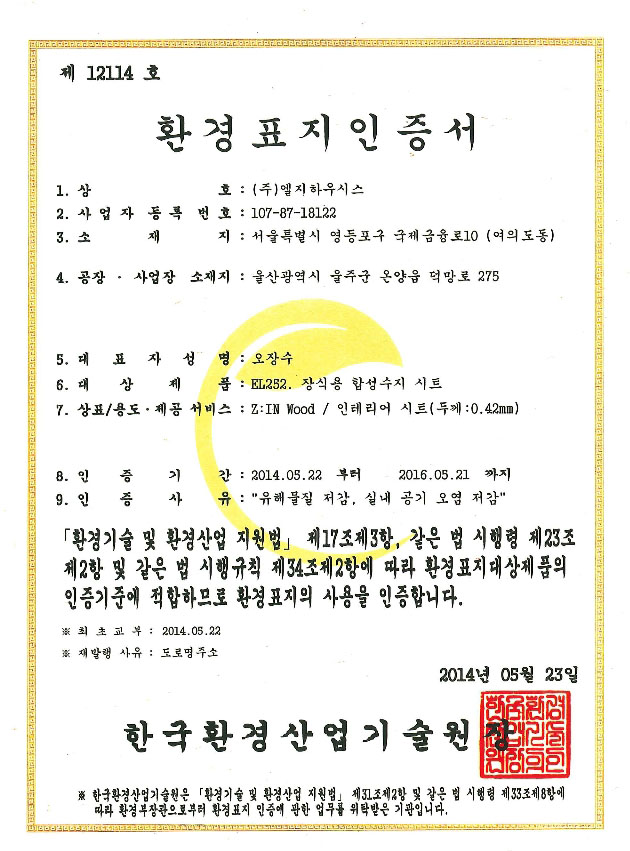 제 12114 호
환경표지인증서
1. 상 호 : (주)엘지하우시스
2. 사 업 자 등 록 번 호 : 107-87-18122
3. 소 재 지 : 서울특별시 영등포구 국제금융로10 (여의도동)
4. 공장 · 사업장 소재지 : 울산광역시 울주군 온양읍 덕망로 275
5. 대 표 자 성 명 : 오장수
6. 대 상 제 품 : EL252. 장식용 합성수지 시트
7. 상표/용도·제공 서비스 : Z:IN Wood / 인테리어 시트(두께:0.42mm)
8. 인 증 기 간 : 2014.05.22 부터 2016.05.21 까지
9. 인 증 사 유 : "유해물질 저감, 실내 공기 오염 저감"
「환경기술 및 환경산업 지원법」 제17조제3항, 같은 법 시행령 제23조
제2항 및 같은 법 시행규칙 제34조제2항에 따라 환경표지대상제품의
인증기준에 적합하므로 환경표지의 사용을 인증합니다.
※ 최 초 교 부 : 2014.05.22
※ 재발행 사유 : 도로명주소
2014년 05월 23일
한국환경산업기술원장
※ 한국환경산업기술원은 「환경기술 및 환경산업 지원법」 제31조제2항 및 같은 법 시행령 제33조제8항에
따라 환경부장관으로부터 환경표지 인증에 관한 업무를 위탁받은 기관입니다.